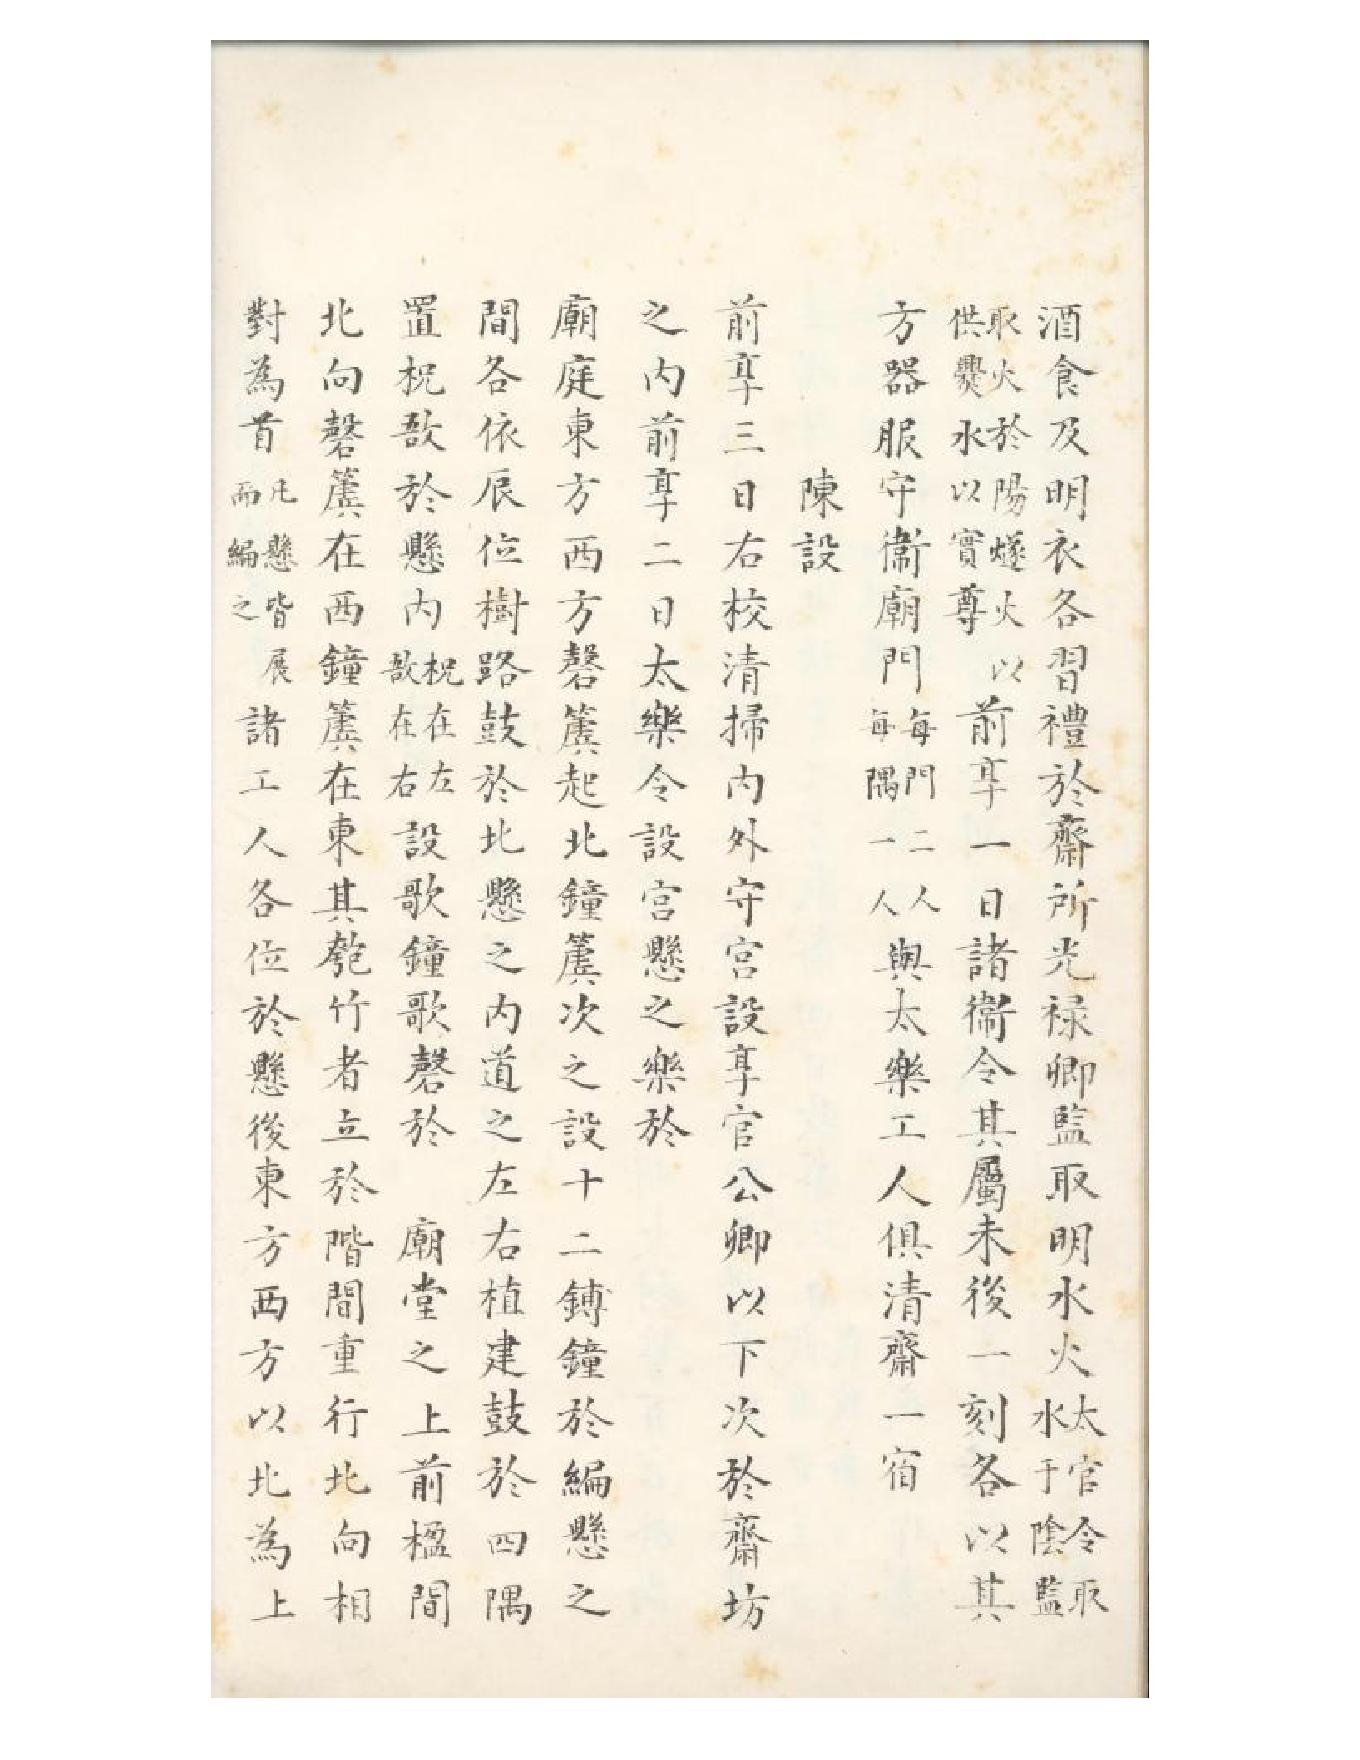 酒食及明衣各習禮於齋所光祿卿監取明水火太官令取水于陰監
取火於陽燧火以供爨水以實尊前享一日諸衞令其屬未後一刻各以其
方器服守衞廟門每門二人每隅一人與太樂工人俱清齋一宿
陳設
前享三日右校清掃內外守宮設享官公卿以下次於齋坊
之內前享二日太樂令設宮懸之樂於
廟庭東方西方磬簴起北鐘簴次之設十二鎛鐘於編懸之
間各依辰位樹路鼓於北懸之內道之左右植建鼓於四隅
置柷敔於懸內柷在左敔在右設歌鐘歌磬於 廟堂之上前楹間
北向磬簴在西鐘簴在東其匏竹者立於階間重行北向相
對為首凡懸皆展而編之諸工人各位於懸後東方西方以北為上